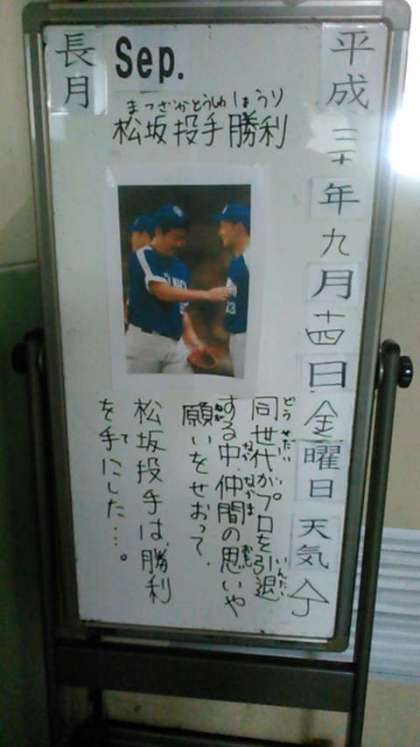 平成三十年九月十四日金曜日 天気
長月
Sep.
まつざかとうしゅしょうり
松坂投手勝利
どうせだい いんたい
同世代がプロを引退
なか なかま おも
する中、仲間の思いや
ねが
願いをせおって、
松坂投手は、勝利
て
を手にした…。